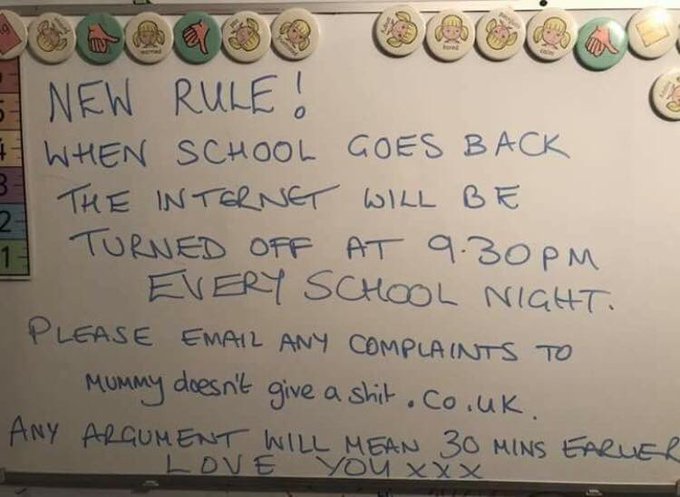 NEW RULE!
WHEN SCHOOL GOES BACK
THE INTERNET WILL BE
TURNED OFF AT 9.30PM
EVERY SCHOOL NIGHT.
PLEASE EMAIL ANY COMPLAINTS TO
MUMMY doesn't give a shit.co.uk.
ANY ARGUMENT WILL MEAN 30 MINS EARLIER
LOVE YOU xxx
3
2
1